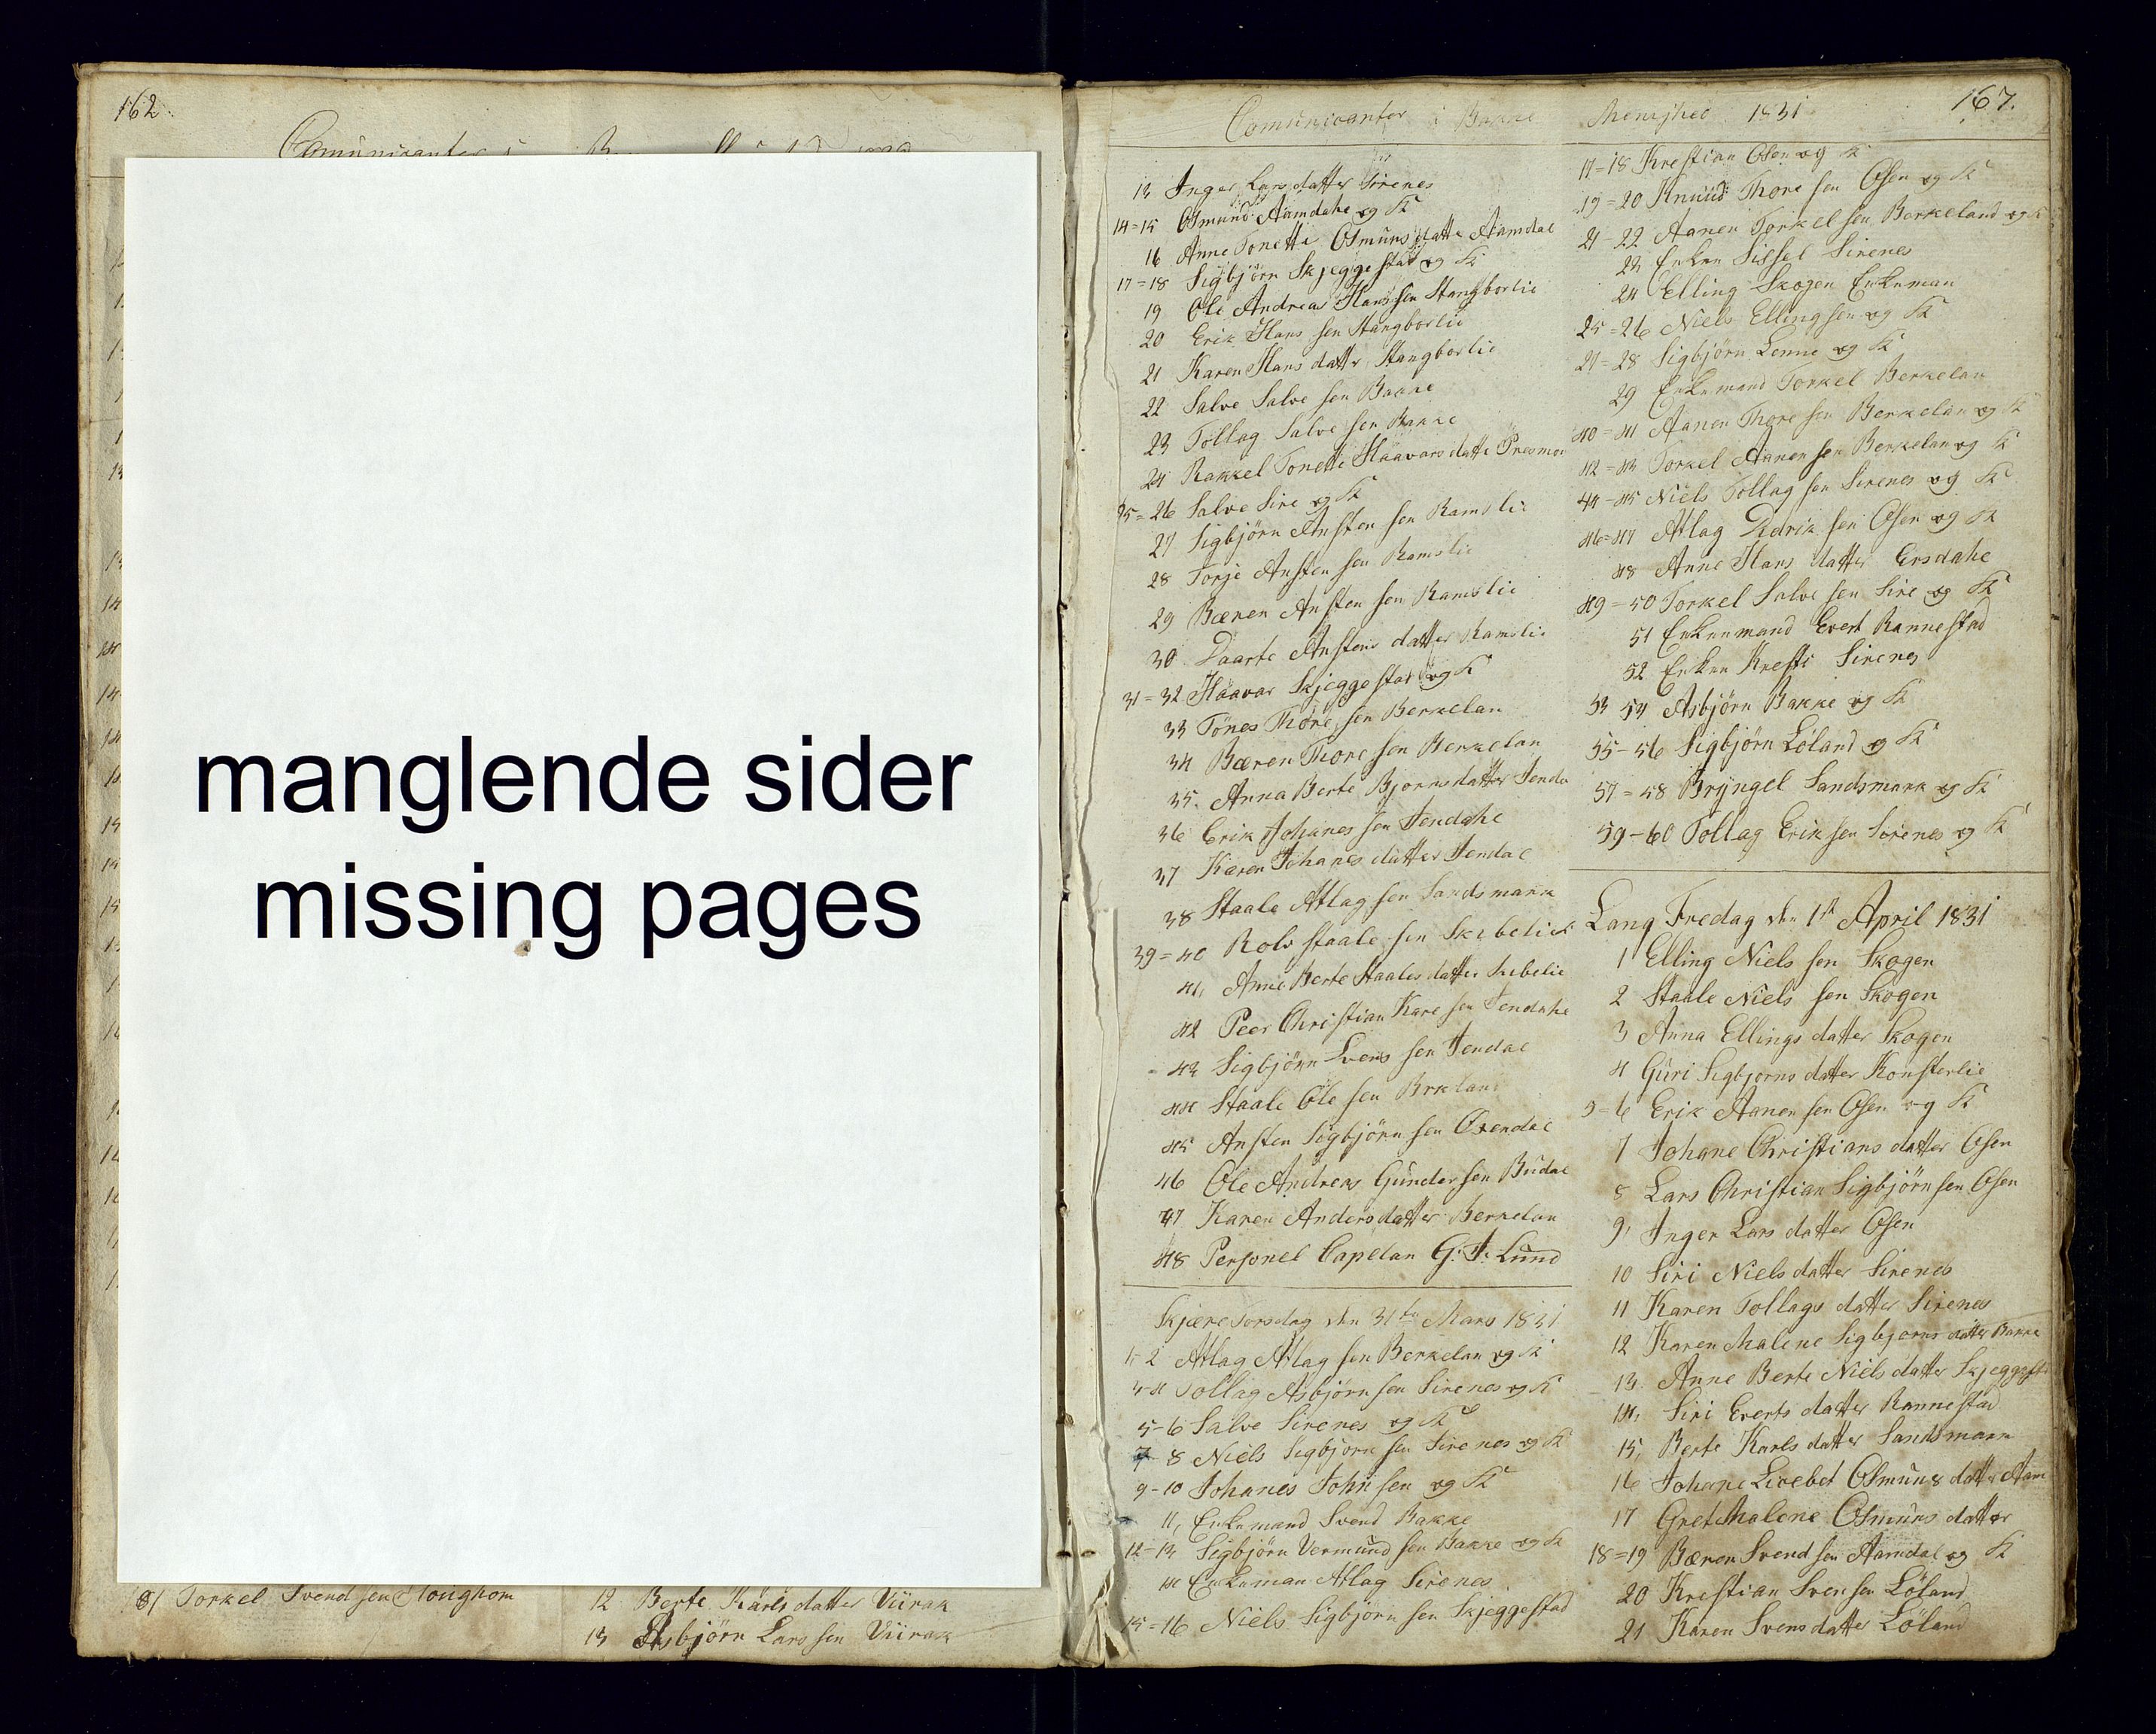 162.
Comunicanter i
manglende sider
missing pages
81 Torkel Svend sen
12 Berte Karls datter Viirak
13 Asbjörn Lars sen Viirak
167.
Comunicanter i Bakke Menighed 1831
13 Inger Lars datter Sirenes
14=15 Osmund Aamdahe og K
16 Anne Tonette Osmuns datte Aamdal
17=18 Sigbjörn Skjeggestad og K
19 Ole Andreas Hans sen Stangborlie
20 Erik Hans sen Stangborlie
21 Karen Hans datter Stangborlie
22 Salve Salve sen Bakke
23 Tollag Salve sen Bakke
24 Rakkel Tonette Haavars datte
25=26 Salve Sire og K
27 Sigbjörn Ansten sen Ramslie
28 Torje Ansten sen Ramslie
29 Bæren Ansten sen Ramslie
30 Daarte Anstens datter Ramslie
31=32 Haavar Skjeggestad og K
33 Tönes Thore sen Berkelan
34 Bæren Thore sen Berkelan
35. Anna Berte Bjorns datter
36 Erik Johanes sen Jendahe
37 Karen Johanes datter Jendal
38 Staale Atlag sen Sandsmark
39=40 Rolv Staale sen
41, Anne Berte Staales datter
42 Peer Christian Kare sen Jendahe
43 Sigbjörn Svens sen Jendal
44 Staale Ole sen
45 Ansten Sigbjörn sen Oxendal
46 Ole Andreas Gunder sen
47 Karen Anders datter Berkelan
48 Personel Capelan G. F. Lund
Skjære Torsdag den 31te Mars 1831
1-2 Atlag Atlag sen Berkelan og K
3-4 Tollag Asbjörn sen Sirenes og K
5-6 Salve Sirenes og K
7-8 Niels Sigbjörn sen Sirenes og K
9-10 Johanes John sen og K
11, Enkemand Svend Bakke
12-13 Sigbjörn Vermund sen Bakke og K
14 Enkeman Atlag Sirenes
15=16 Niels Sigbjörn sen Skjeggestad
17=18 Krestian Osen og K
19=20 Knuud Thore sen Osen og K
21-22 Aanen Torkel sen Berkeland og K
23 Enken Sissel Sirenes
24 Elling Skogen Enkeman
25=26 Niels Elling sen og K
27=28 Sigbjörn Lenne og K
29 Enkemand Torkel Berkelan
40=41 Aanen Thore sen Berkelan og K
42=43 Torkel Aanen sen Berkelan og K
44-45 Niels Tollag sen Sirenes og K
46=47 Atlag Didrik sen Osen og K
48 Anne Hans datter Ersdahe
49-50 Torkel Salve sen Sire og K
51 Enkemand Evert Rannestad
52 Enken Kresti Sirenes
53 54 Asbjörn Bakke og K
55-56 Sigbjörn Löland og K
57=58 Bryngel Sandsmark og K
59-60 Tollag Erik sen Sirenes og K
Lang Fredag den 1st April 1831
1 Elling Niels sen Skogen
2 Staale Niels sen Skogen
3 Anna Ellings datter Skogen
4 Guri Sigbjorns datter Konsterlie
5=6 Erik Aanen sen Osen og K
7 Johane Christians datter Osen
8 Lars Christian Sigbjörn sen Osen
9, Inger Lars datter Osen
10 Siri Niels datter Sirenes
11 Karen Tollags datter Sirenes
12 Karen Malene Sigbjorns datter Bakke
13. Anne Berte Niels datter
14, Siri Everts datter Rannestad
15, Berte Karls datter Sandsmark
16 Johane Lisebet Osmuns datter Aam
17 Gret Malene Osmuns datter
18=19 Bæren Svend sen Aamdal og K
20 Krestian Sven sen Löland
21 Karen Svens datter Löland